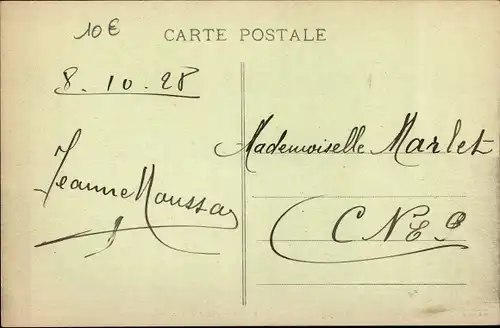 10€
CARTE POSTALE
8.10.28
Mademoiselle Marlet
Jeanne Moussay
C N E P